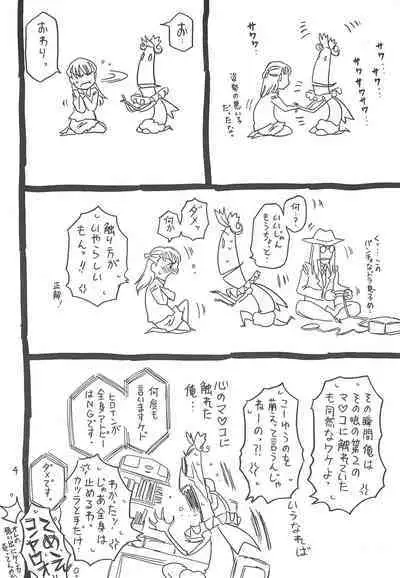 サワ
サワ…
サワ
サワサワ…
姿勢の悪いる
だったな。
お
おわりっ。
くっ…この
何?
いいじゃん
もうちょっと!
ダメッ。
何か
触り方が
いやらしい
もんっ!!
正解!
その瞬間俺は
その娘の第2の
マ♡コに触れていた
も同然なワケよ。
いうなれば
こーゆうのを
萌えって言うんじゃ
ねーのっ?!
心のマ♡コに
触れた
俺…
何度も
言いますケド
ヒロインが
全身アトピー
はNGです。
わかった!
じゃあ全身は
止めるわ。
カツラと手だけ
ダメです。
てめえ
コンヤロオ
4